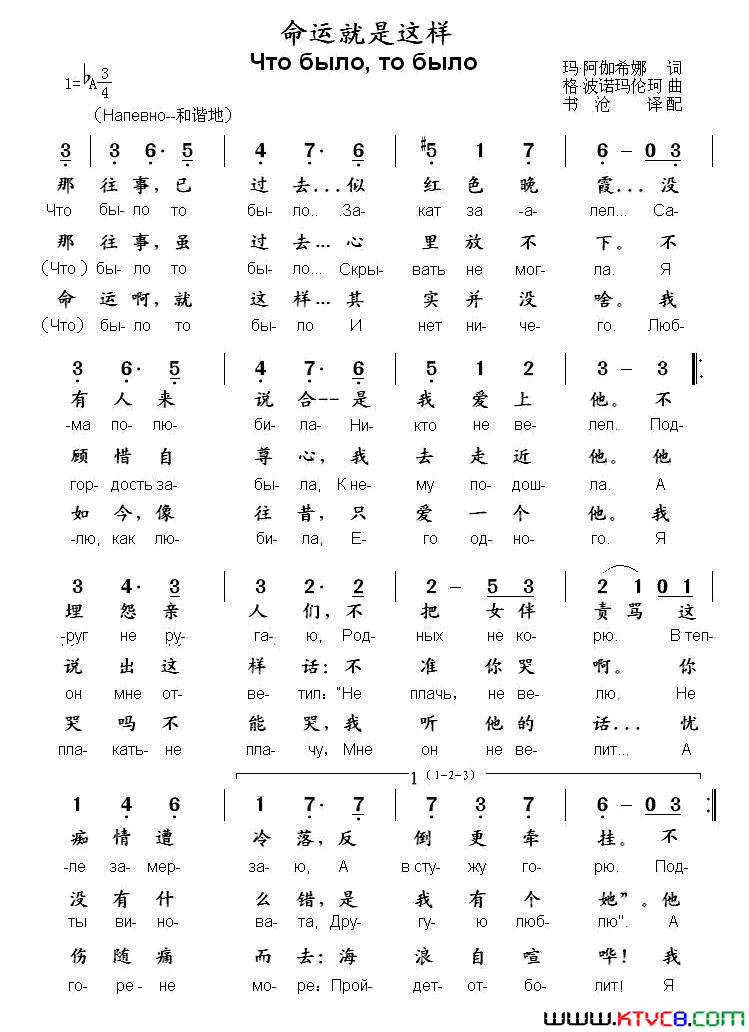 命运就是这样
Что было, то было
1=♭A 3/4
玛·阿伽希娜 词
格·波诺玛伦珂 曲
书沧 译配
（Напевно--和谐地）
3 | 3 6· 5 | 4 7· 6 | #5 1 7 | 6 – 0 3 |
那 往 事，已 过 去...似 红 色 晚 霞...没
Что бы- ло то бы- ло.. .За- кат за -а- лел... Са-
那 往 事，虽 过 去...心 里 放 不 下。不
(Что) бы- ло то бы- ло... Скры- вать не мог- ла. Я
命 运 啊，就 这 样...其 实 并 没 啥。我
(Что) бы- ло то бы- ло И нет ни- че- го. Люб-
3 6· 5 | 4 7· 6 | 5 1 2 | 3 – 3 :
有 人 来 说 合--是 我 爱 上 他。不
-ма по- лю- би- ла- Ни- кто не ве- лел. Под-
顾 惜 自 尊 心，我 去 走 近 他。他
гор- дость за- бы- ла, К не- му по- дош- ла. А
如 今，像 往 昔，只 爱 一 个 他。我
-лю, как лю- би- ла, Е- го од- но- го. Я
3 4· 3 | 3 2· 2 | 2 – 5 3 | 2 1 0 1 |
埋 怨 亲 人 们，不 把 女 伴 责 骂 这
-руг не ру- га- ю, Род- ных не ко- рю. В теп-
说 出 这 样 话：不 准 你 哭 啊。你
он мне от- ве- тил: "Не плачь, не ве- лю. Не
哭 吗 不 能 哭，我 听 他 的 话... 忧
пла- кать- не пла- чу, Мне он не ве- лит... А
1 (1-2-3)
1 4 6 | 1 7· 7 | 7 3 7 | 6 – 0 3 :|
痴 情 遭 冷 落，反 倒 更 牵 挂。不
-ле за- мер- за- ю, А в сту- жу го- рю. Под-
没 有 什 么 错，是 我 有 个 她”。他
ты ви- но- ва- та, Дру- гу- ю люб- лю". А
伤 随 痛 而 去：海 浪 自 喧 哗！我
го- ре - не мо- ре: Прой- дет- от- бо- лит! Я
www.KTVC8.com